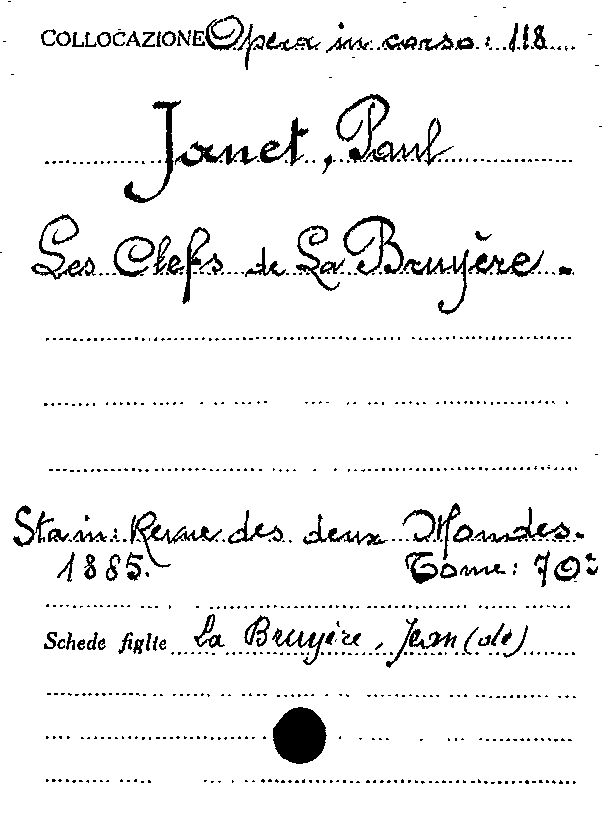 COLLOCAZIONE Opera in corso: 118
Janet, Paul
Les Clefs de La Bruyère.
Sta in: Revue des deux Mondes.
1885. Tome: 70º
Schede figlie La Bruyère, Jean (de)